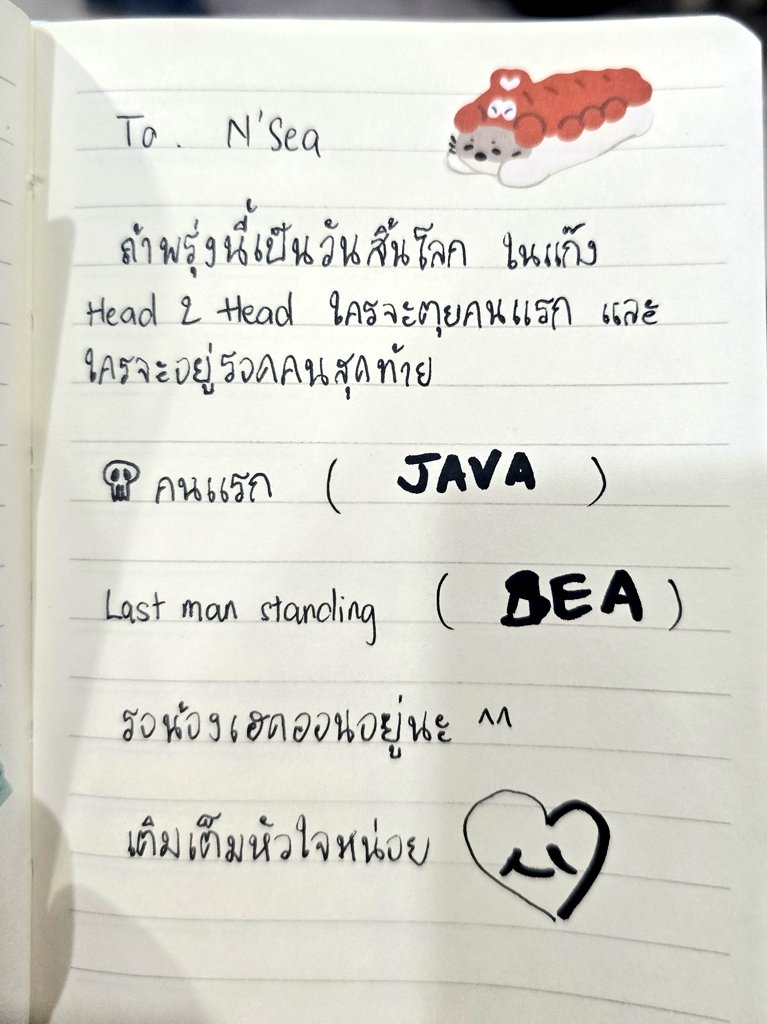 To. N'Sea
ถ้าพรุ่งนี้เป็นวันสิ้นโลก ในแก๊ง
Head 2 Head ใครจะตุยคนแรก และ
ใครจะอยู่รอดคนสุดท้าย
คนแรก ( JAVA )
Last man standing ( SEA )
รอน้องเฮดออนอยู่นะ ^^
เติมเต็มหัวใจหน่อย